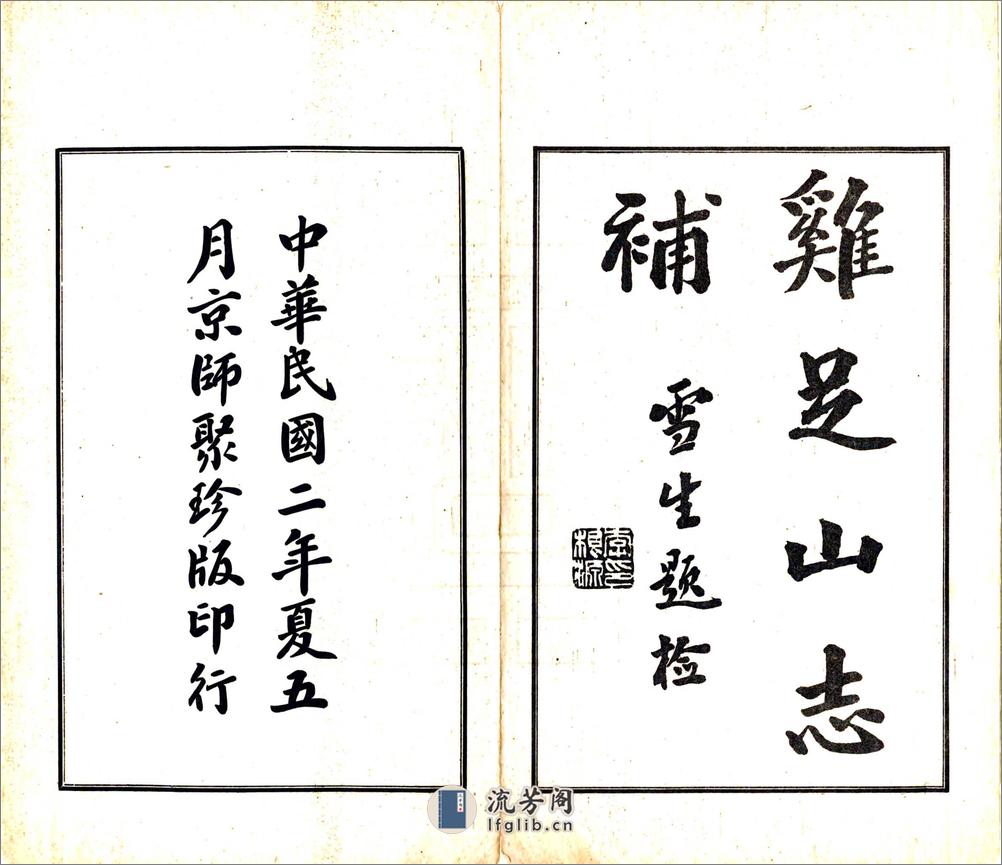 雞足山志
補
雪生題检
李印
根源
中華民國二年夏五
月京師聚珍版印行
流芳阁
lfglib.cn